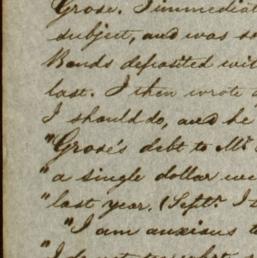 Grose. I immediat
subject, and was so
Bonds deposited wit
last. I then wrote
I should do, and he
"Grose's debt to Mr.
"a single dollar
"last year. (Septr. I
"I am anxious t
"I do not